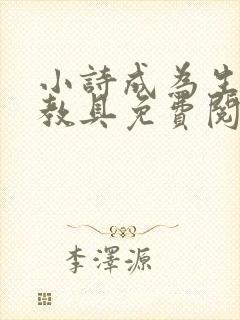 小詩成為生
教具免費閱
李澤源